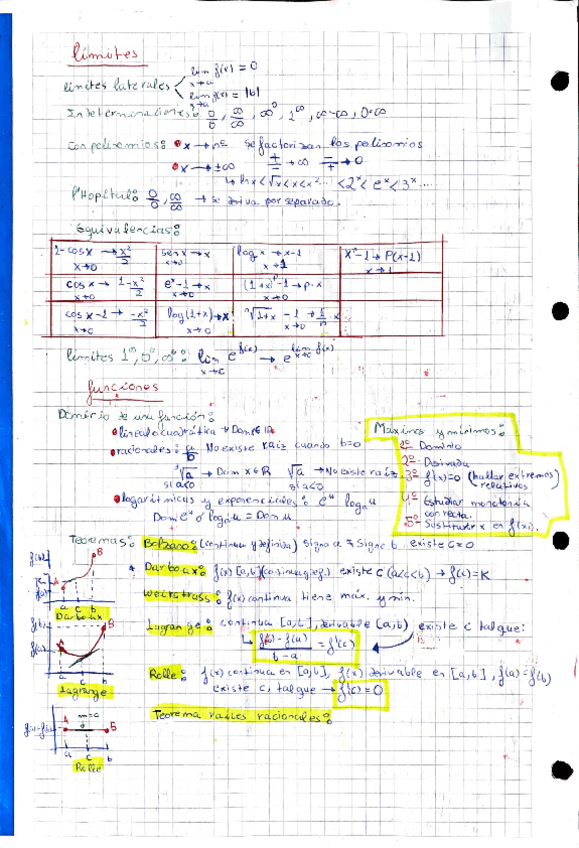 límites
límites laterales lim f(x) = 0
x→a
lim f(x) = |b|
x→a
Indeterminaciones: 0/0, ∞/∞, ∞⁰, 1^∞, ∞-∞, 0·∞
Con polinomios: • x → nº se factorizan los polinomios
• x → ±∞
↳ ln x < √x < x < x² ... < 2ˣ < eˣ < 3ˣ ...
l'Hopital: 0/0, ∞/∞ → se deriva por separado.
Equivalencias:
1-cosx → x²/2 x→0 | sen x → x x→0 | log x → x-1 x→1 | xⁿ-1 → P(x-1) x→1
cos x → 1-x²/2 x→0 | eˣ-1 → x x→0 | (1+x)ᵖ-1 → p·x x→0
cos x-1 → -x²/2 x→0 | log(1+x) → x x→0 | ⁿ√1+x - 1 → 1/n · x x→0
límites 1^∞, 0⁰, ∞⁰: lim e^f(x) → e^lim f(x)
x→c
funciones
Dominio de una función:
• lineal o cuadrática → Dom x∈R
• racionales: a/b No existe raíz cuando b=0
³√a → Dom x∈R √a → No existe raíz
si a<0 si a<0
• logarítmicas y exponenciales: eᵘ logₐu
Dom eᵘ o logₐu = Dom u
Máximos y mínimos:
1º Dominio
2º Derivada
3º f'(x)=0 (hallar extremos relativos)
4º Estudiar monotonía con recta.
5º Sustituir x en f(x).
Teoremas: Bolzano: (continua y definida) Signo a ≠ Signo b existe c=0
Darboux: f(x) [a,b] existe c (a<c<b) → f(c)=K
Weirstrass: f(x) continua tiene máx. y mín.
Lagrange: continua [a,b], derivable (a,b) existe c tal que:
↳ f(b)-f(a) / b-a = f'(c)
Rolle: f(x) continua en [a,b], f(x) derivable en [a,b], f(a)=f(b)
existe c, tal que → f'(c)=0
Teorema raíces racionales:
B
a c b
Darboux
f(b)
f(a)
A
B
a c b
Lagrange
A m=0 B
a c b
Rolle